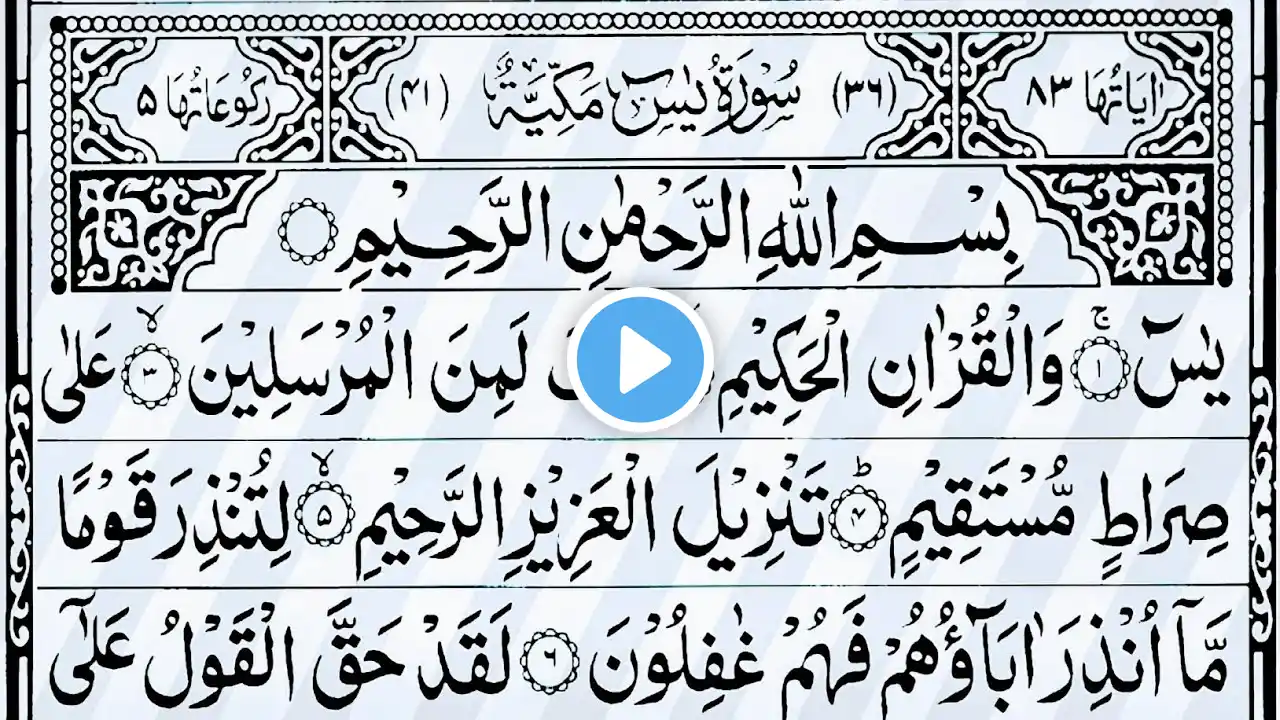 اٰيَاتُهَا ٨٣ (٣٦) سُوْرَةُ يٰسٓ مَكِّيَّةٌ (٤١) رَكُوْعَاتُهَا ٥
بِسْمِ اللّٰهِ الرَّحْمٰنِ الرَّحِيْمِ
يٰسٓ ۚ ١ وَالْقُرْاٰنِ الْحَكِيْمِ لَمِنَ الْمُرْسَلِيْنَ ۙ ٣ عَلٰى
صِرَاطٍ مُّسْتَقِيْمٍ ؕ ٤ تَنْزِيْلَ الْعَزِيْزِ الرَّحِيْمِ ۙ ٥ لِتُنْذِرَ قَوْمًا
مَّاۤ اُنْذِرَ اٰبَآؤُهُمْ فَهُمْ غٰفِلُوْنَ ٦ لَقَدْ حَقَّ الْقَوْلُ عَلٰۤى